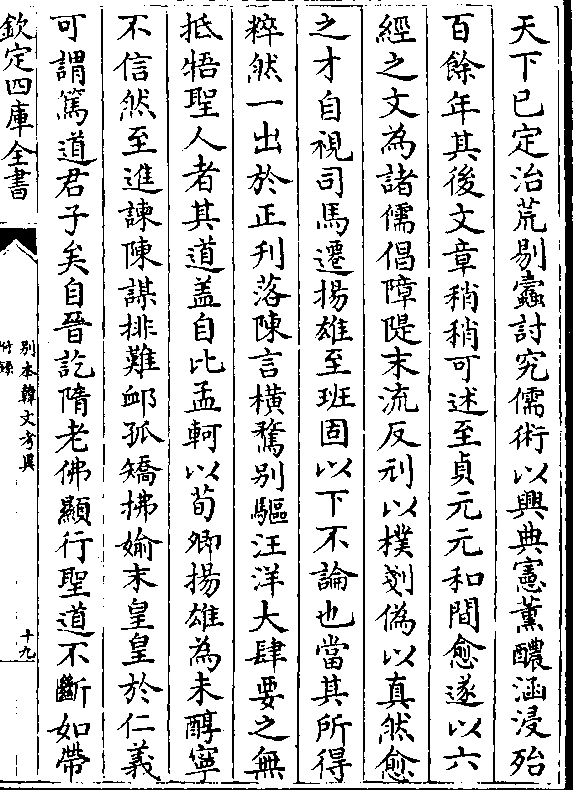 天下已定治荒剔蠹討究儒術以興典憲薰醲涵浸殆
百餘年其後文章稍稍可述至貞元元和間愈遂以六
經之文為諸儒倡障隄末流反刓以樸剗偽以真然愈
之才自視司馬遷揚雄至班固以下不論也當其所得
粹然一出於正刋落陳言橫騖别驅汪洋大肆要之無
抵牾聖人者其道盖自比孟軻以荀卿揚雄為未醇寧
不信然至進諫陳謀排難䘏孤矯拂媮末皇皇於仁義
可謂篤道君子矣自晉訖隋老佛顯行聖道不斷如帶
欽定四庫全書
别本韓文考異
附錄
十九